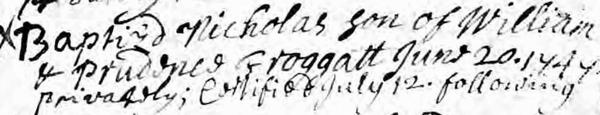 Baptized Nicholas son of William
& Prudence Froggatt June 20. 1747
privately; Certified July 12. following